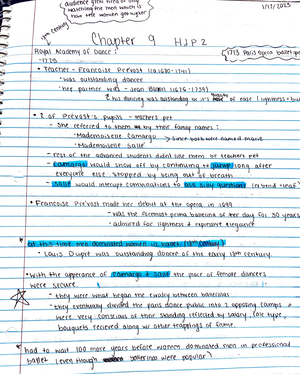 audience got tired of only
watching the men which is
how the women got higher
1/17/2023
17th century
Chapter 9 HJP2
Royal Academy of Dance:
1713 Paris opera ballet
-1725
• Teacher - Francoise Prevost (c.1680-1741)
- was outstanding dancer
- her partner was - Jean Balon (1676-1739)
his dancing was outstanding bc it's quality of ease, lightness +
• 2 of Prevost's pupils - teachers pet
- She referred to them by their family names:
- Mademoiselle Camargo
> since both were named Marie
- Mademoiselle Sallé
- rest of the advanced students didn't like them bc teachers pet
- Camargo would show off by continuing to jump long after
everyone else stopped by being out of breath
- Sallé would interupt combinations to ask silly questions
• Francoise Prevost made her debut at the opera in 1699
- was the foremost prima ballerina of her day for 30 years
- admired for lightness + expensive elegance
• At this time men dominated women in ballet (18th century)
• Louis Dupré was outstanding dancer of the early 18th century.
• With the apperance of Camargo + Sallé the place of female dancers
were secure.
- they were what began the rivalry between ballerinas
- they eventually divided the paris dance public into 2 opposing camps +
were very concious of their standing reflected by salary, role type,
bouquets recieved along w/ other trappings of fame.
• had to wait 100 more years before women dominated men in professional
ballet (even though ballerina were popular)